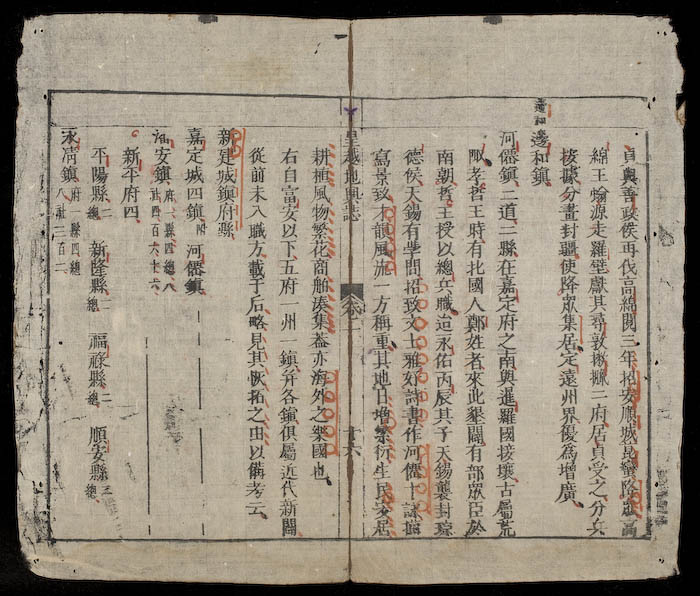 邊和
貞與善政侯再伐高綿閱三年招安鳳城昆蠻降眾高
綿王翰源走羅壁獻其尋敦撥㨿二府居貞受之分兵
按據分畫封疆使降眾集居定遠州界優為增廣
邊和鎮
河僊鎮二道二縣在嘉定府之南與暹羅國接壤古屬荒
陬孝哲王時有北國人鄭姓者來此墾闢有部眾臣於
南朝哲王授以總兵職迨永佑丙辰其子天錫襲封琮
德侯天錫有學問招致文士雅好詩書作河僊十詠摸
寫景致才韻風流一方稱重其地日增繁衍生民安居
皇越地輿誌
卷二
十六
耕植風物繁花商舶湊集蓋亦海外之樂國也
右自富安以下五府一州一鎮并各鎮俱屬近代新闢
從前未入職方載于后略見其恢拓之由以備考云
新建城鎮府縣
嘉定城四鎮附河僊鎮
安鎮府一縣四總八社四百六十六
新平府四
平陽縣二總 新隆縣二總 福祿縣二總 順安縣二總
鎮府一縣四總八社三百二